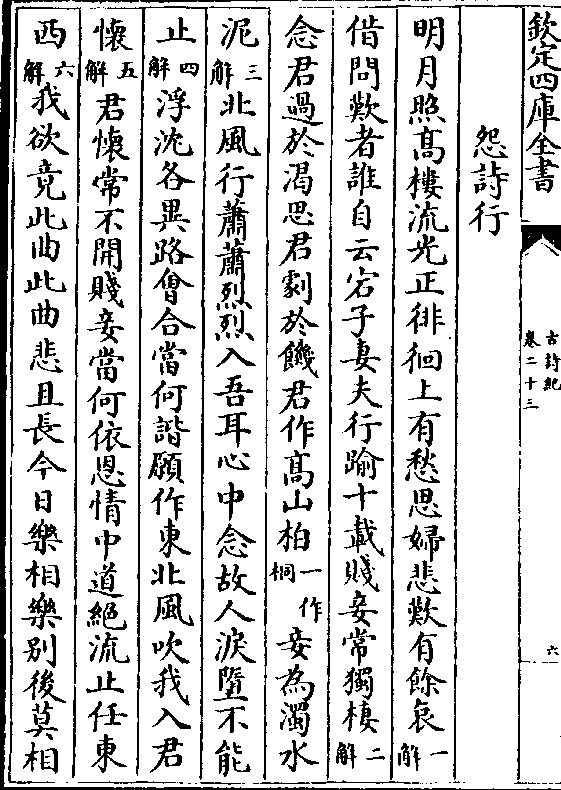 欽定四庫全書
古詩紀
卷二十三
六
怨詩行
明月照髙樓流光正徘徊上有愁思婦悲歎有餘哀一解
借問歎者誰自云宕子妻夫行踰十載賤妾常獨棲二解
念君過於渴思君劇於饑君作髙山柏一作桐妾為濁水
泥三解北風行蕭蕭烈烈入吾耳心中念故人淚墮不能
止四解浮沈各異路㑹合當何諧願作東北風吹我入君
懷五解君懷常不開賤妾當何依恩情中道絶流止任東
西六解我欲竟此曲此曲悲且長今日樂相樂别後莫相